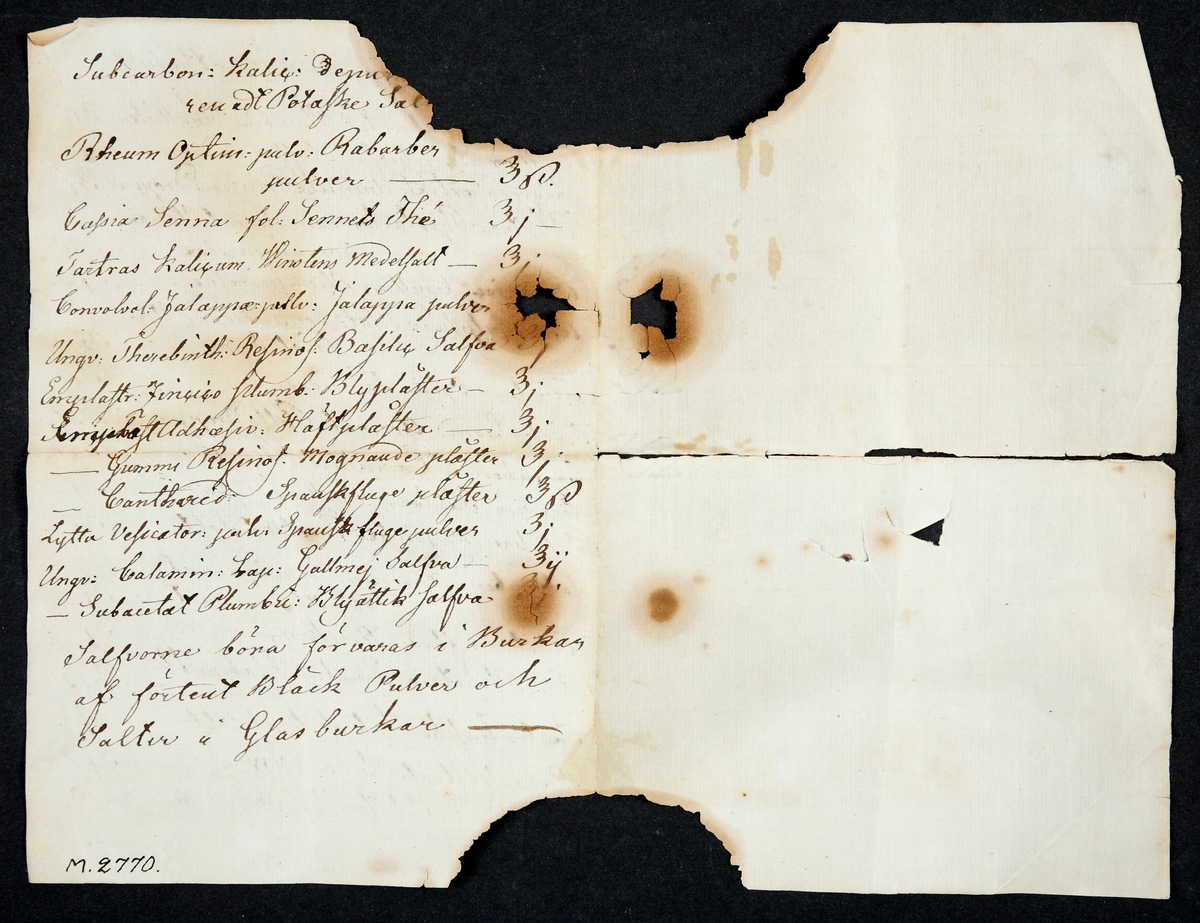 Subcarbon: Kalic: Depur
renadt Potaske Sal
Rheum Optim: pulv: Rabarber
pulver — ʒ ß.
Cassia Senna fol: Sennets Thé ʒ j —
Tartras Kalicum Winstens Medelsalt — ʒ j
Convolvol: Jalappæ: pulv: Jalappa pulver
Ungv: Therebinth: Resinos: Basilic Salfva j
Emplastr: Plumb: Blyplåster — ʒ j
Adhæsiv: Häftplåster — ʒ j
— Gummi Resinos: Mognande plåster ʒ j
— Canthared: Spanskfluge plåster ʒ ß
Lytta Vesicator: pulv: Spansk fluge pulver ʒ j
Ungv: Calamin: Lap: Gallmej Salfva — ʒ ij
— Subacetat Plumbic: Blyättik Salfva ʒ
Salfvorne böra förvaras i Burkar
af förtent Bläck Pulver och
Salter i Glas burkar —
M. 2770.